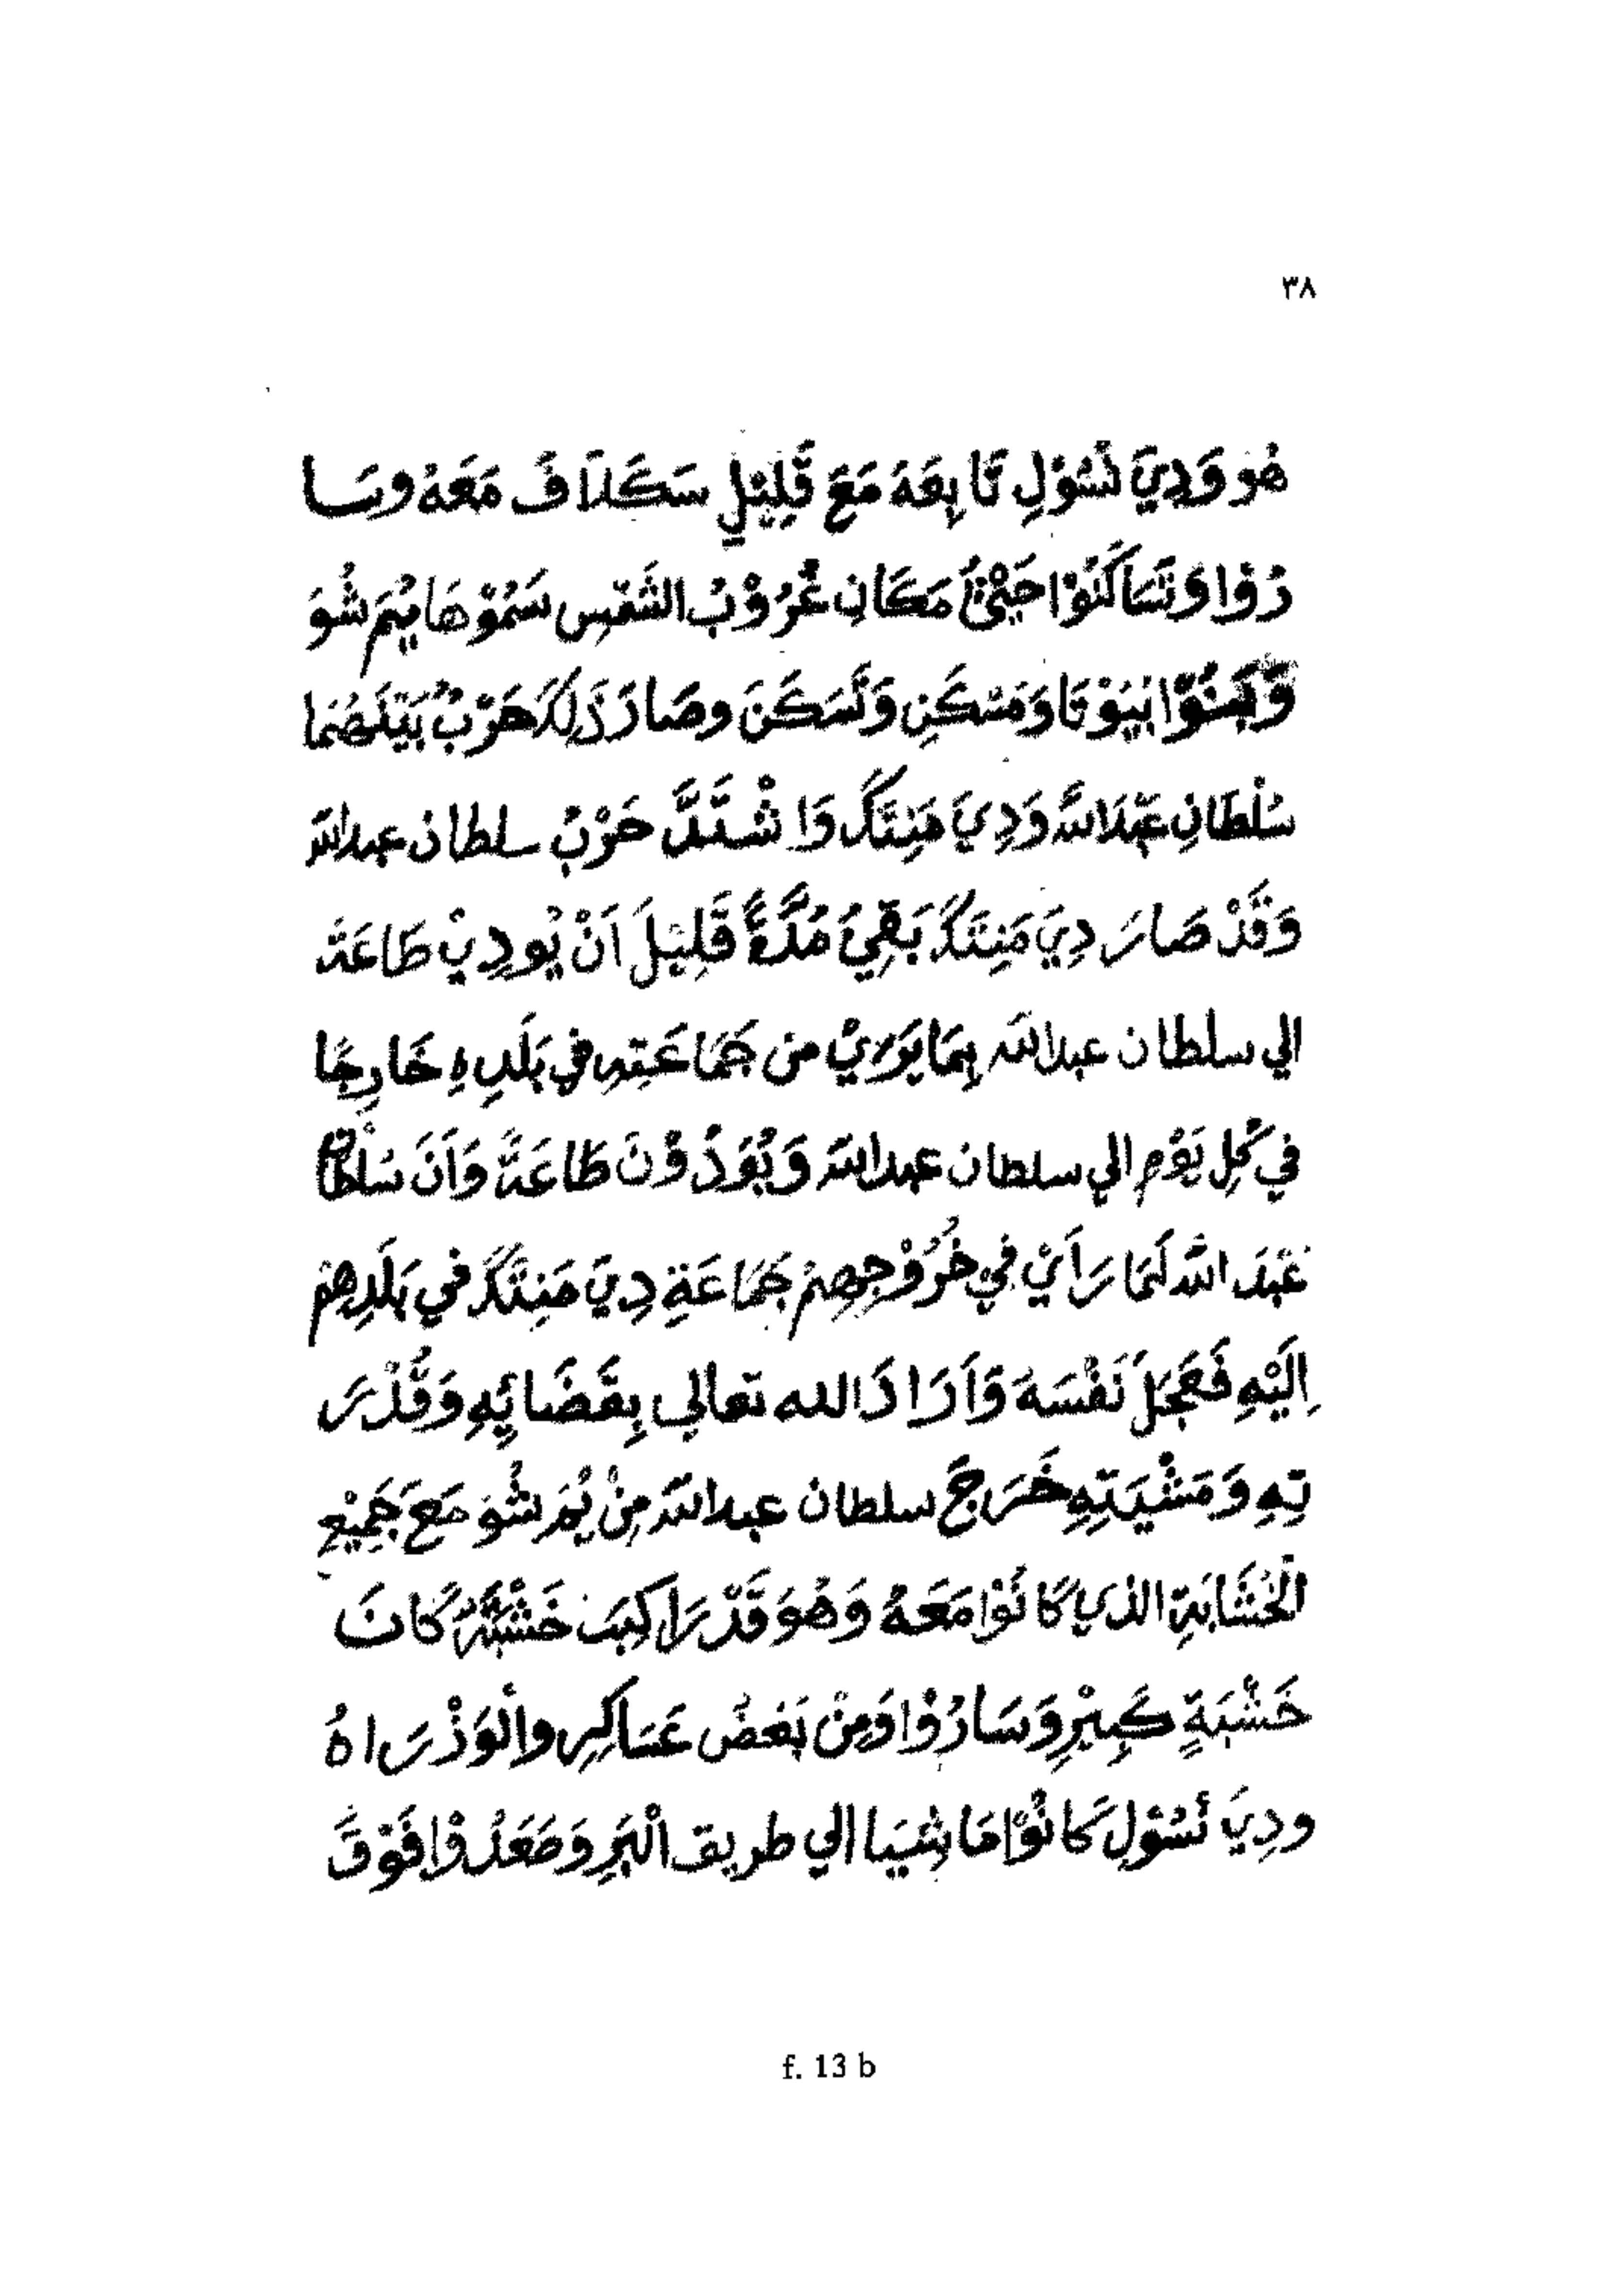 ٣٨
هُو وَدِيَ نَسُوْلِ تَابِعَهَ مَعَ قَلِيْلٍ سَكَلاَفَ مَعَهُ وسَا
رُوْا وَتَسَاكَنُوْا حَتْيُ مَكَانِ غُرُوْبُ الشَمْسِ سَمُوْهَا يُمَ شُوَ
وَبَنُوْا بُيَوْتَا وَمَسْكَنِ وَتَسَكَنَ وصَارَ ذَلِكَ حَرْبُ بَيْنَهُمَا
سُلْطَانِ عَبْدَاللَّهْ وَدِيَ مَنِتَكَ وَاشْتَدَّ حَرْبُ سلطان عبدالله
وَقَدْ صَارَ دِيَ مَنِتَكَ بَقِيَ مُدَّةً قَلِيْلَ اَنْ يُودِيْ طَاعَةَ
الي سلطان عبدالله بِمَا يَرَيْ من جَمَاعَتِهِ في بَلَدِهِ خَارِجًا
في كُلِ يَوْمِ الي سلطان عبدالله وَيُوَدُوْنَ طَاعَةً وَاَنَ سُلْطَانَ
عَبْدَ اللَّه لَمَا رَاَيْ فِيْ خُرُوْجِهِمْ جَمَاعَةِ دِيَ مَنِتَكَ في بَلَدِهِمْ
اِلَيْهِ فَعَجَلَ نَفْسَهَ وَاَرَادَ الله تعالي بِقَضَائِهِ وَقُدْرَ
تِهِ وَمَشْيَتِهِ خَرَجَ سلطان عبدالله مِنْ يُمَ شُوَ مَعَ جَمِيْعِ
الْخَشَابَةِ الذي كَانَوْا مَعَهُ وَهُوَ قَدْ رَاكِبَ خَشْبَةُ كَانَ
خَشْبَةٍ كَبِيْرِ وَسَارُوْا وَمِنْ بَعْضُ عَسَاكِرِ والْوَزْرَاهُ
ودِيَ نَسُوْلِ كَانُوْا مَاشِيَا الي طريق الْبَرِ وَصَعَدُوْا فَوْقَ
f. 13 b